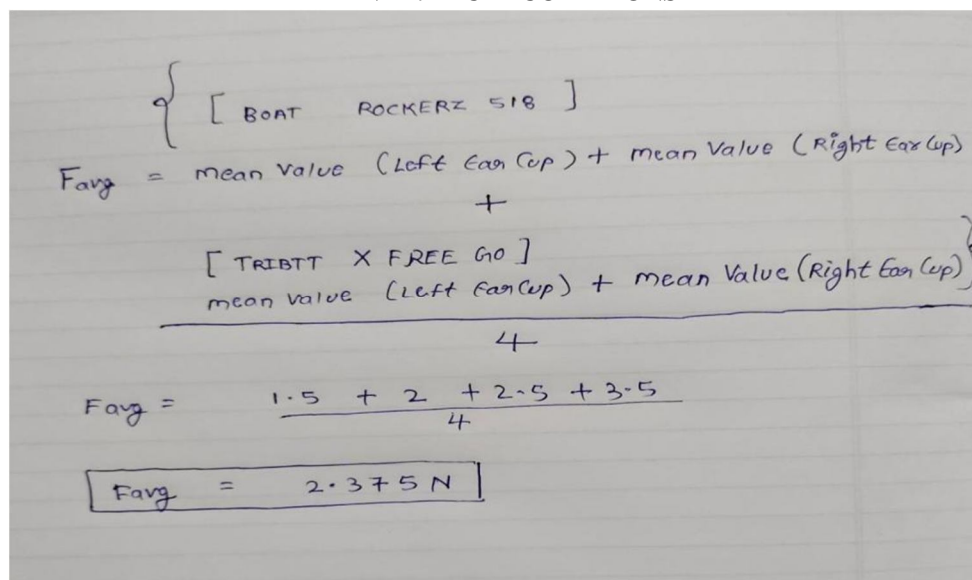 { [ BOAT ROCKERZ 518 ]
Favg = mean value (Left Ear Cup) + mean Value (Right Ear Cup)
+
[ TRIBTT X FREE GO ]
mean value (Left Ear Cup) + mean Value (Right Ear Cup) }
4
Favg = 1.5 + 2 + 2.5 + 3.5
4
Favg = 2.375 N